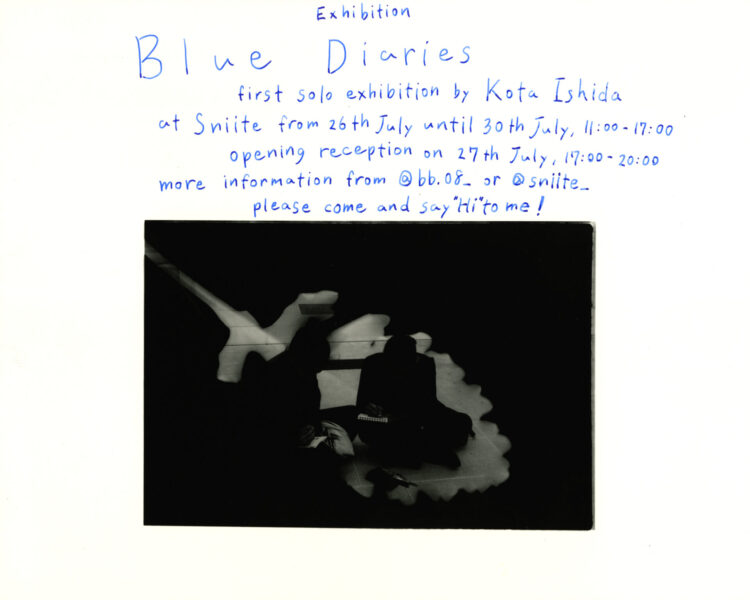 Exhibition
Blue Diaries
first solo exhibition by Kota Ishida
at Sniite from 26th July until 30th July, 11:00-17:00
opening reception on 27th July, 17:00-20:00
more information from @bb.08_ or @sniite_
please come and say "Hi" to me!